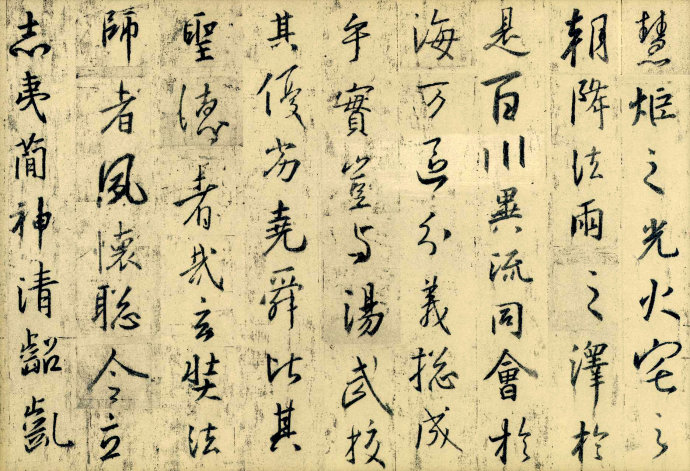 慧炬之光火宅之
朝降法雨之澤於
是百川異流同會於
海万區分義揔成
乎實豈与湯武校
其優劣堯舜比其
聖德者哉玄奘法
師者夙懷聰令立
志夷簡神清齠齔